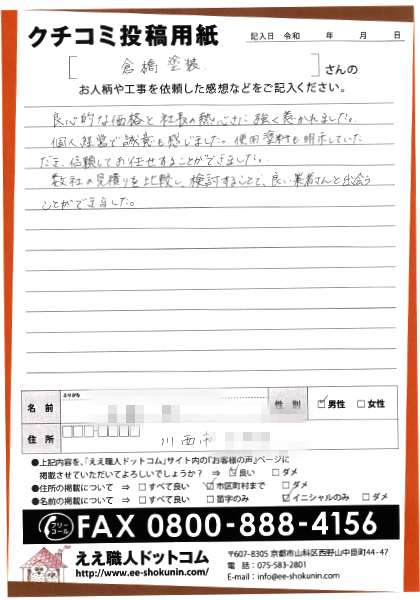 クチコミ投稿用紙
記入日 令和 年 月 日
倉橋塗装 さんの
お人柄や工事を依頼した感想などをご記入ください。
良心的な価格と社長の熱心さに強く惹かれました。
個人経営で誠意も感じました。使用塗料も明示していた
だき、信頼してお任せすることができました。
数社の見積りを比較し、検討することで、良い業者さんと出会う
ことができました。
名前
ふりがな
性別 ☑男性 □女性
住所
川西市
●上記内容を、「ええ職人ドットコム」サイト内の『お客様の声』ページに
掲載させていただいてよろしいでしょうか? ⇒ ☑良い □ダメ
●住所の掲載について ⇒ □すべて良い ☑市区町村まで □ダメ
●名前の掲載について ⇒ □すべて良い □苗字のみ ☑イニシャルのみ □ダメ
フリーコール FAX 0800-888-4156
ええ職人ドットコム
http://www.ee-shokunin.com/
〒607-8305 京都市山科区西野山中臣町44-47
電話:075-583-2801
E-mail:info@ee-shokunin.com